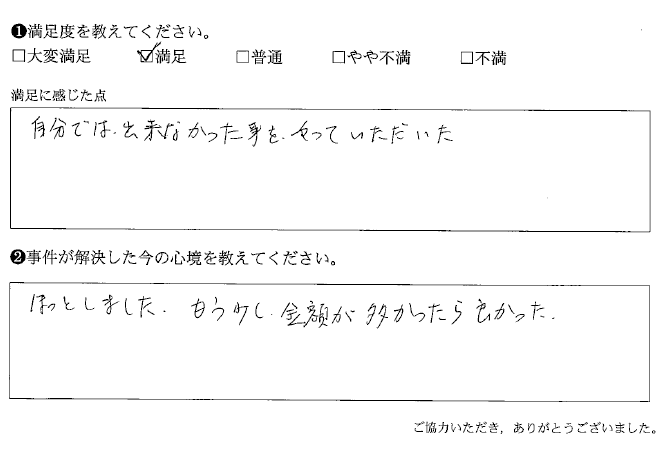 ❶満足度を教えてください。
□大変満足 ☑満足 □普通 □やや不満 □不満
満足に感じた点
自分では、出来なかった事を、やっていただいた
❷事件が解決した今の心境を教えてください。
ほっとしました。もう少し、金額が多かったら良かった。
ご協力いただき，ありがとうございました。